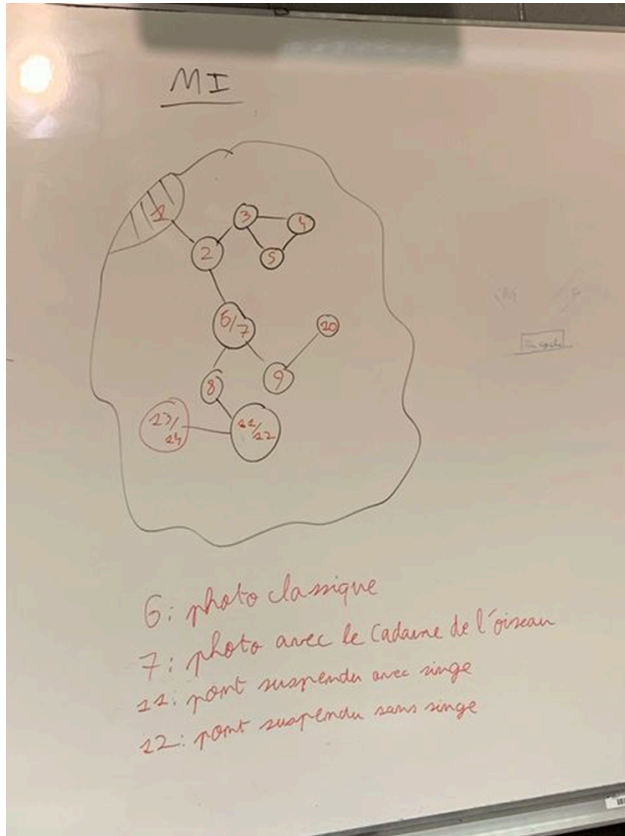 MI
1
3
4
2
5
6/7
20
9
8
13/
14
11/
12
6: photo classique
7: photo avec le Cadavre de l'oiseau
11: pont suspendu avec singe
12: pont suspendu sans singe